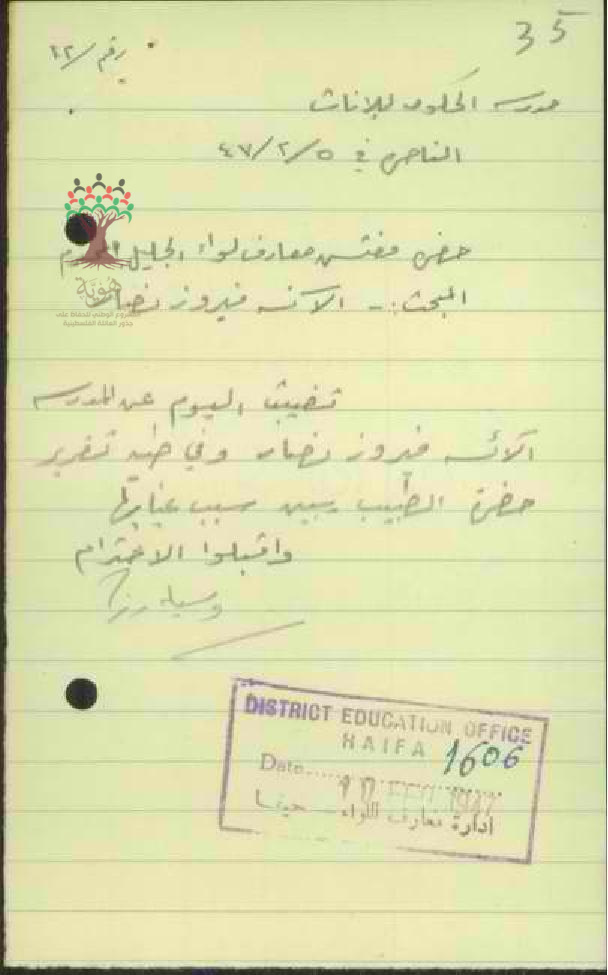 35
رقم /٤٢
مدرسة الحكومة للاناث
الناصرة في ٥/٢/٤٧
حضرة مفتش معارف لواء الجليل المحترم
المبحث :- الآنسة فيروز نصار
هوية
المشروع الوطني للحفاظ على
جذور العائلة الفلسطينية
تغيبت اليوم عن المدرسة
الآنسة فيروز نصار وفي طيه تقرير
حضرة الطبيب يبين سبب غيابها
واقبلوا الاحترام
DISTRICT EDUCATION OFFICE
HAIFA 1606
Date 10 FEB 1947
ادارة معارف اللواء - حيفا